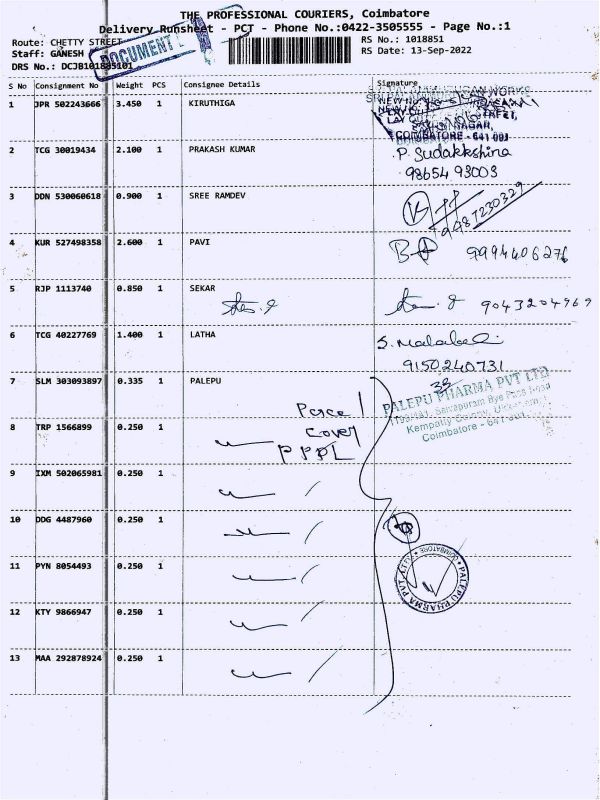 THE PROFESSIONAL COURIERS, Coimbatore
Delivery Runsheet - PCT - Phone No.:0422-3505555 - Page No.:1
Route: CHETTY STREET
RS No.: 1018851
Staff: GANESH
RS Date: 13-Sep-2022
DRS No.: DCJB101885101
DOCUMENT
S No Consignment No Weight PCS Consignee Details Signature
1 JPR 502243666 3.450 1 KIRUTHIGA
COIMBATORE - 641 001
2 TCG 30019434 2.100 1 PRAKASH KUMAR P. Sudakkshina
98654 93003
3 DDN 530060618 0.900 1 SREE RAMDEV
9487230329
4 KUR 527498358 2.600 1 PAVI 9994406276
5 RJP 1113740 0.850 1 SEKAR 9043204969
6 TCG 40227769 1.400 1 LATHA
9150240731
7 SLM 303093897 0.335 1 PALEPU
PALEPU PHARMA PVT LTD
Coimbatore - 641
8 TRP 1566899 0.250 1
cover
PPPL
9 IXM 502065981 0.250 1
10 DDG 4487960 0.250 1
11 PYN 8054493 0.250 1
PALEPU PHARMA PVT COIMBATORE
12 KTY 9866947 0.250 1
13 MAA 292878924 0.250 1